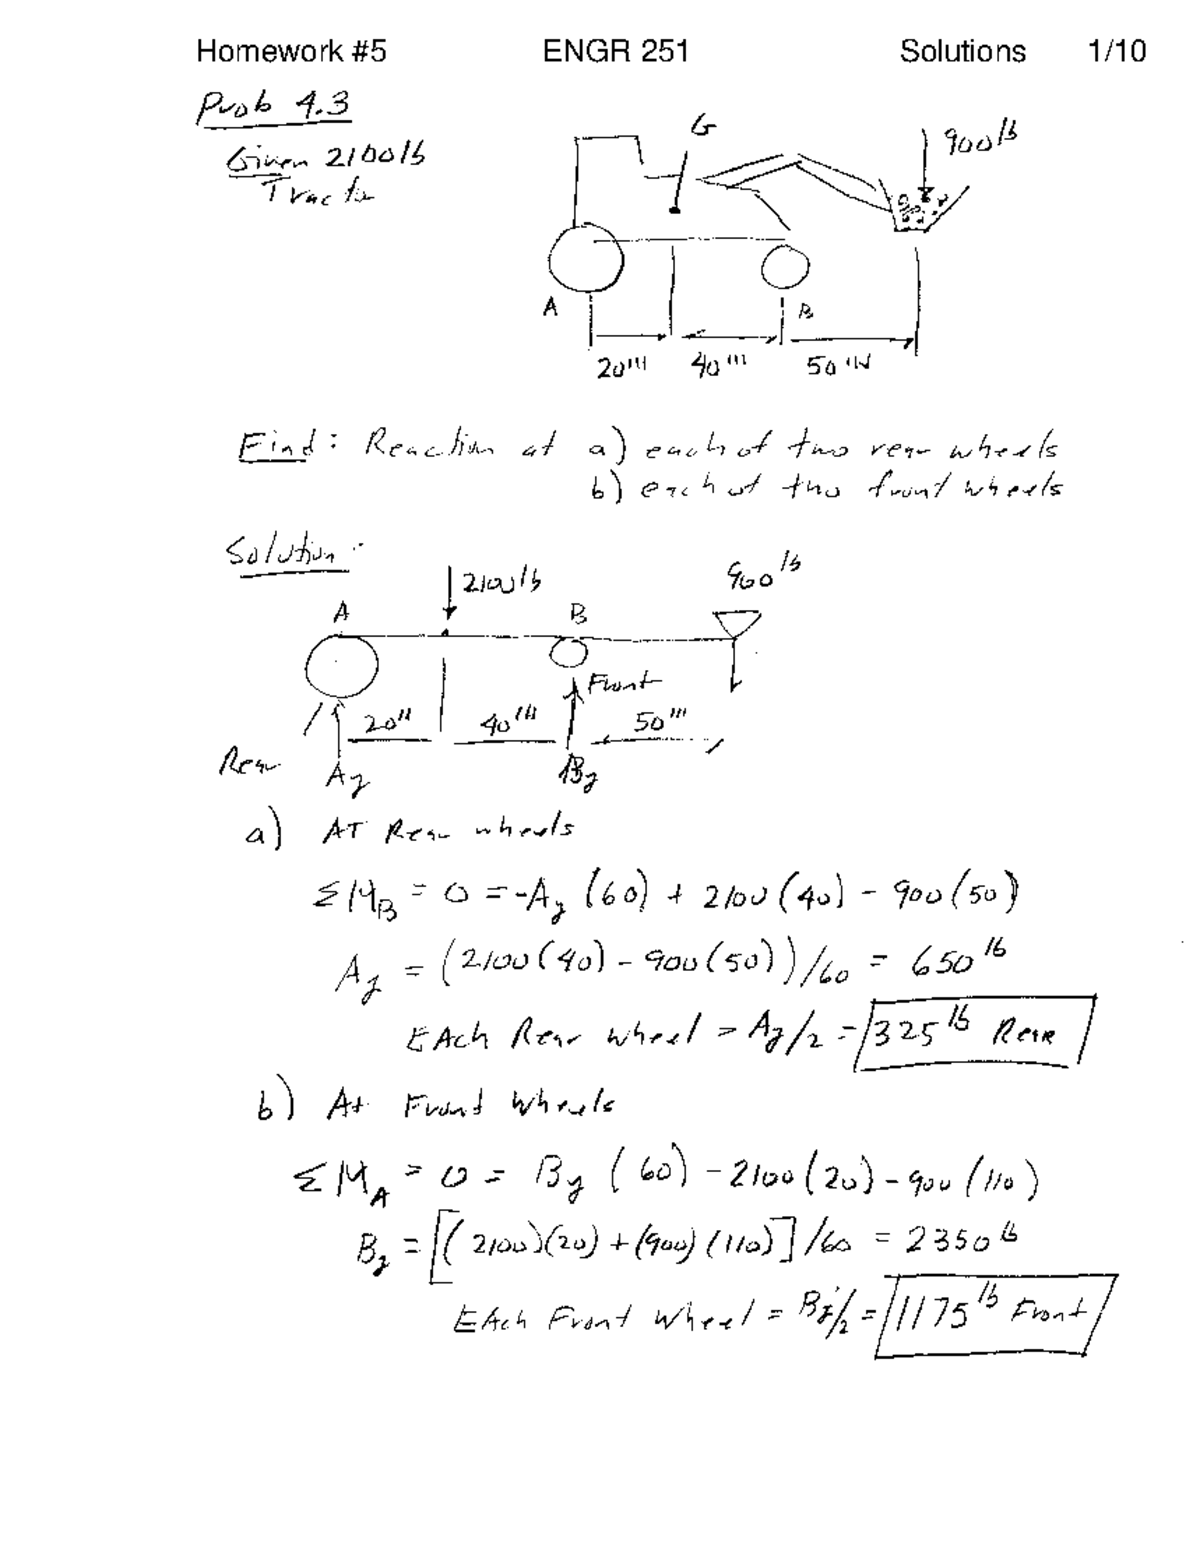 Homework #5 ENGR 251 Solutions 1/10
Prob 4.3
Given 2100 lb
Tractor
G
900 lb
A
B
20 in 40 in 50 in
Find: Reaction at a) each of two rear wheels
b) each of two front wheels
Solution:
2100 lb
900 lb
A
B
Front
20" 40 in 50 in
Rear Ay By
a) AT Rear wheels
ΣM_B = 0 = -Ay (60) + 2100 (40) - 900 (50)
Ay = (2100(40) - 900(50))/60 = 650 lb
EAch Rear wheel = Ay/2 = 325 lb Rear
b) At Front Wheels
ΣM_A = 0 = By (60) - 2100(20) - 900 (110)
By = [(2100)(20) + (900)(110)]/60 = 2350 lb
EAch Front Wheel = By/2 = 1175 lb Front